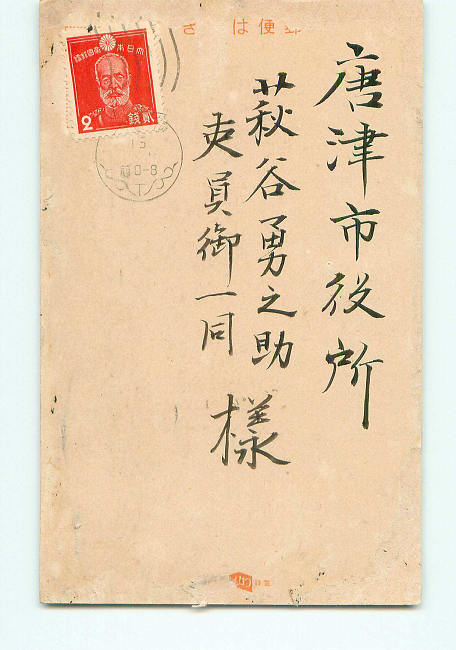 さ は 便 郵
大日本帝國郵便
2
貳錢
0-8
唐津市役所
萩谷勇之助
吏員御一同
様